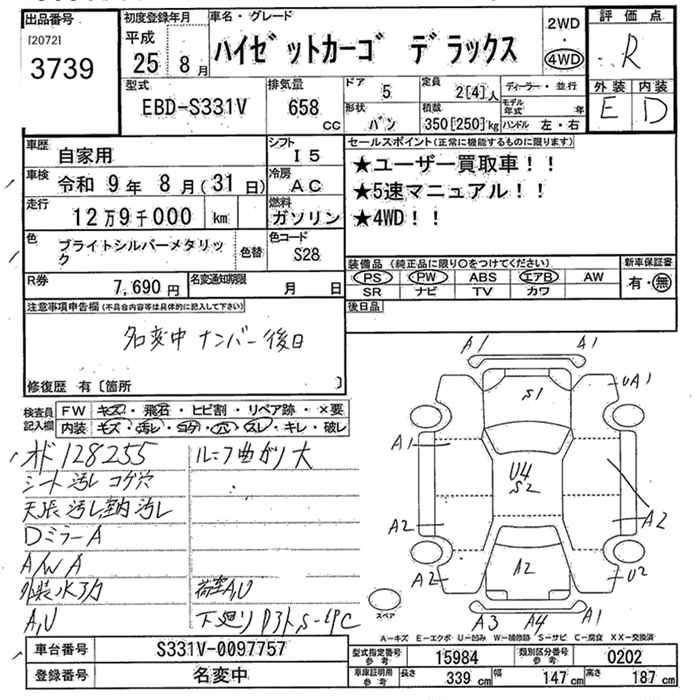 出品番号
[2072]
3739
初度登録年月
平成
25 8 月
車名・グレード
ハイゼットカーゴ デラックス
2WD
・
4WD
評価点
R
外装 内装
E D
型式
EBD-S331V
排気量
658
cc
ドア
5
定員
2[4]人
ディーラー・並行
形状
バン
積載
350[250]kg
モデル年式 年
ハンドル 左・右
車歴
自家用
シフト
I5
車検
令和 9年 8月(31日)
冷房
AC
走行
12万9千000 km
燃料
ガソリン
色
ブライトシルバーメタリック
色替
色コード
S28
R券
7,690円
名変通知期限
月 日
セールスポイント(正常に機能するものに限ります)
★ユーザー買取車!!
★5速マニュアル!!
★4WD!!
装備品 (純正品に限り○をつけてください)
PS PW ABS エアB AW
SR ナビ TV カワ
新車保証書
有・無
後日品
注意事項申告欄(不具合内容等は具体的に記入して下さい)
名変中 ナンバー後日
修復歴 有〔箇所 〕
検査員記入欄
FW キズ・飛石・ヒビ割・リペア跡・×要
内装 キズ・汚レ・コゲ・穴・スレ・キレ・破レ
オド128255
シート汚レ コゲ穴
天張汚レ 室内汚レ
DミラーA
A/W A
外装水アカ
A,U
ルーフ曲がり大
荷室A,U
下廻りサビ
A1 A1
S1
UA1
A1
U4
S2
A2
A2
A2
A2
U2
A3 A4 A1
スペア
A-キズ E-エクボ U-凹み W-補修跡 S-サビ C-腐食 XX-交換済
車台番号
S331V-0097757
登録番号
名変中
型式指定番号
参考
15984
類別区分番号
参考
0202
車庫証明用
参考
長さ
339 cm
幅
147 cm
高さ
187 cm